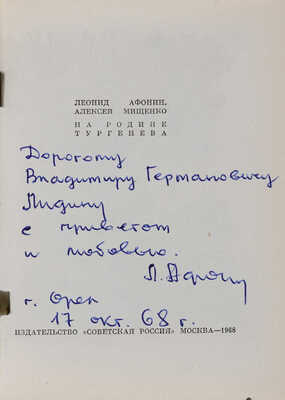 ЛЕОНИД АФОНИН,
АЛЕКСЕЙ МИЩЕНКО
НА РОДИНЕ
ТУРГЕНЕВА
Дорогому
Владимиру Германовичу
Лидину
с приветом
и любовью.
Л. Афонин
г. Орел
17 окт. 68 г.
ИЗДАТЕЛЬСТВО «СОВЕТСКАЯ РОССИЯ» МОСКВА—1968